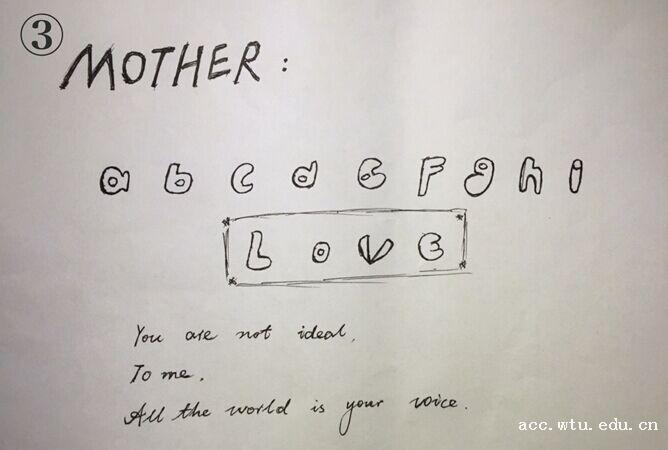 ③
MOTHER:
a b c d e F g h i
LOVE
You are not ideal,
To me.
All the world is your voice.
acc.wtu.edu.cn